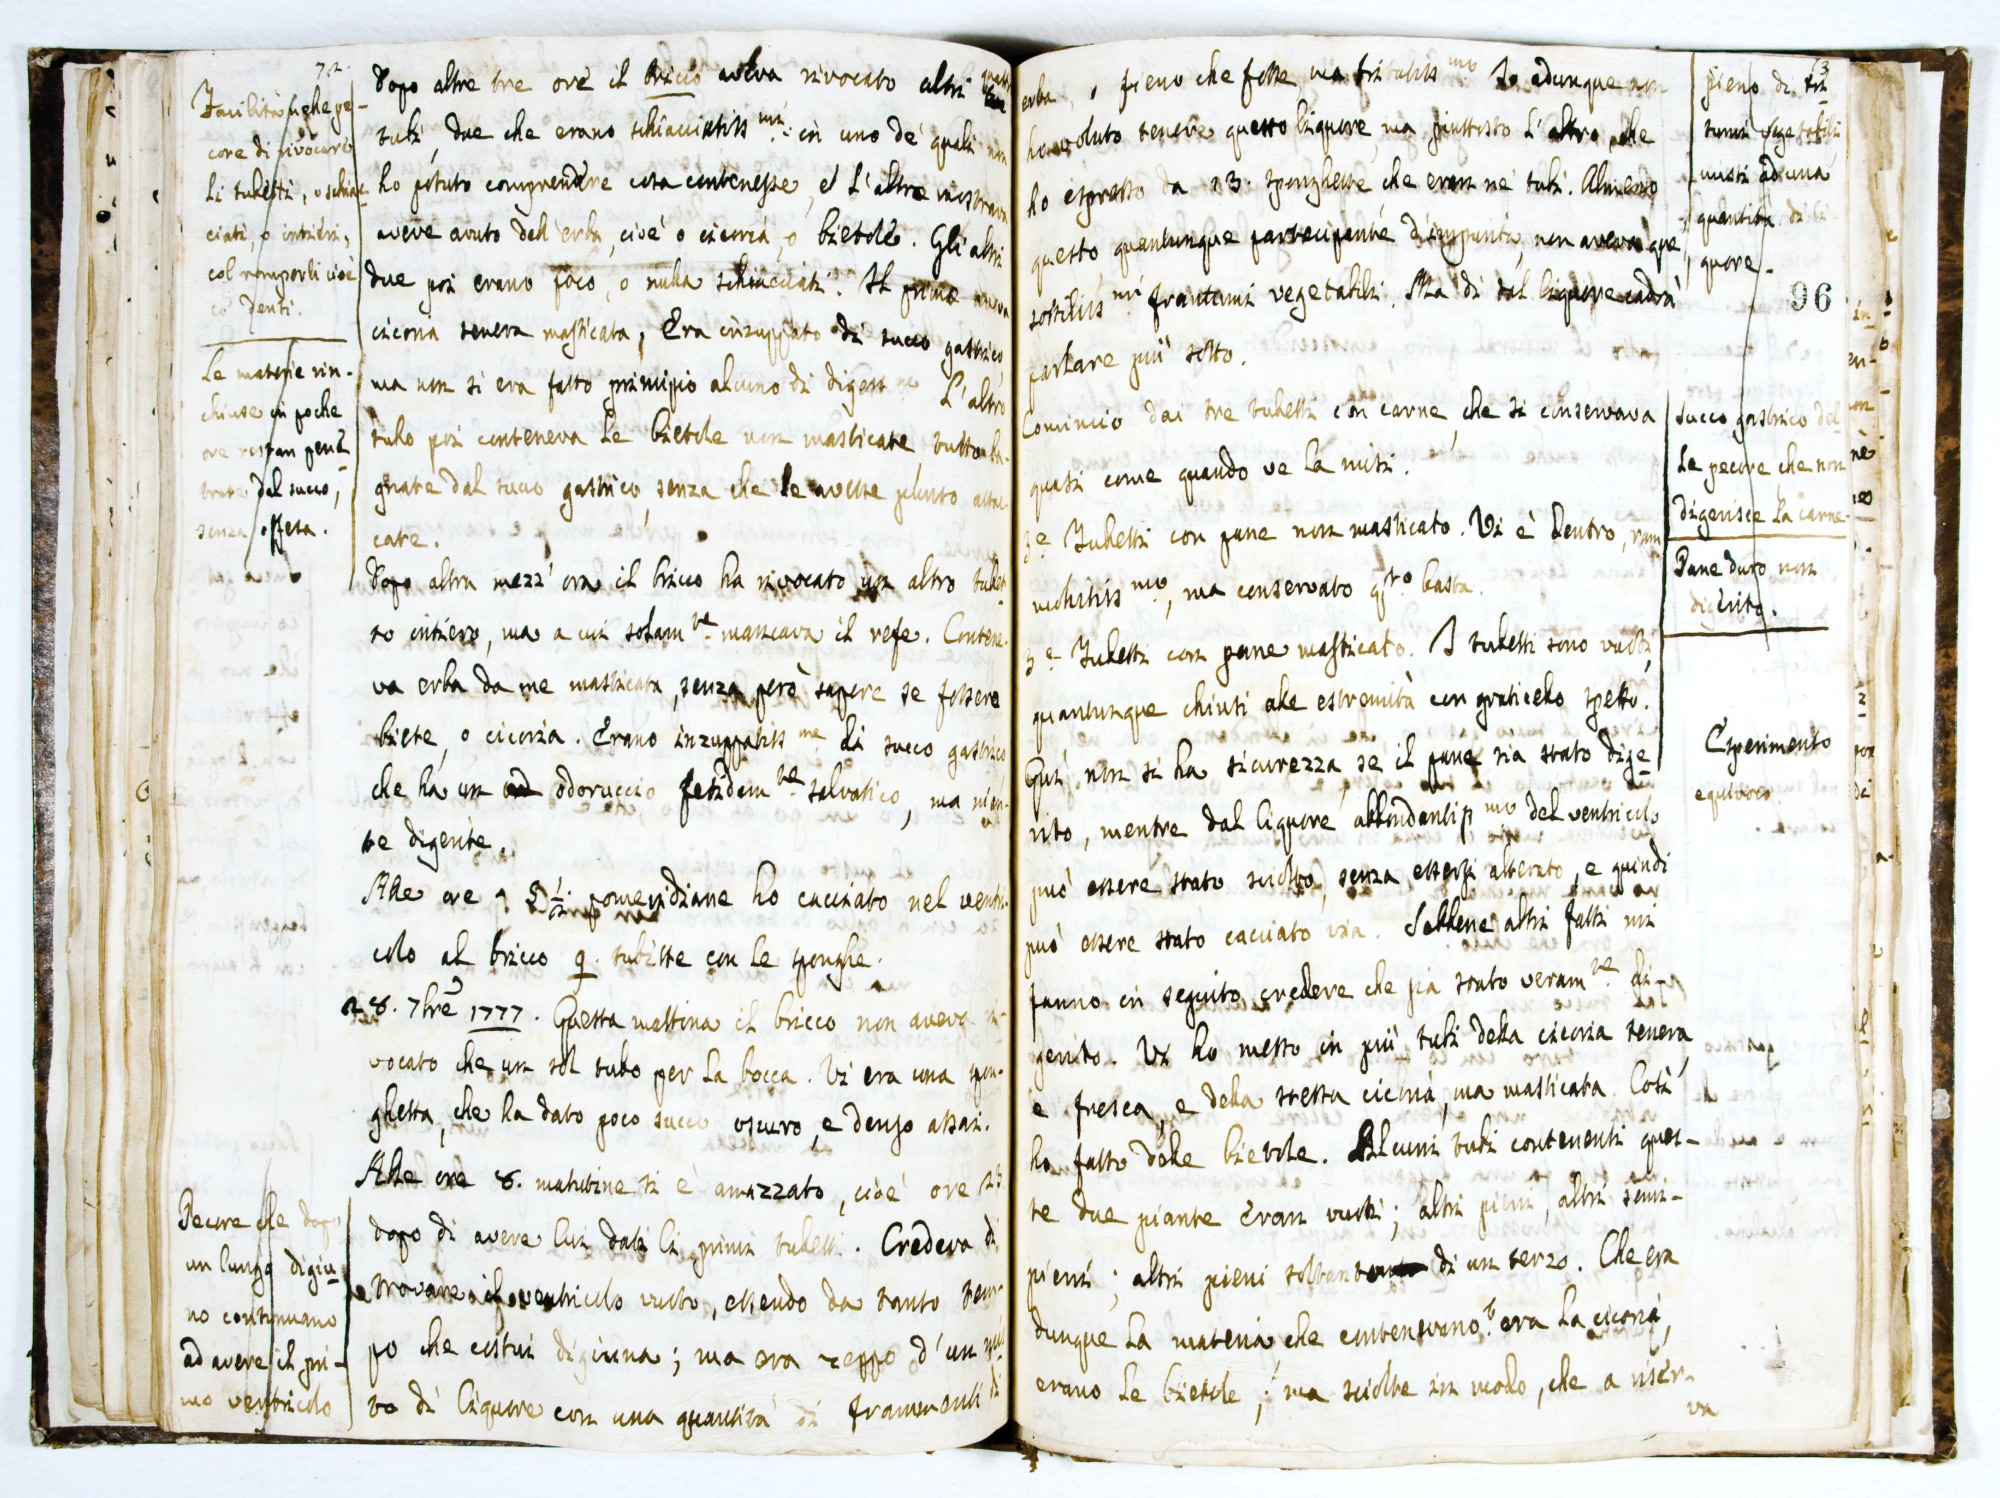 72.
Facilità nelle pe-
core di rivocare
li tubetti, o schiac-
ciati, o intieri,
col romperli cioè
co' denti.
Le materie rin-
chiuse in poche
ore restan pene-
trate dal succo,
senza offesa.
Pecore che dopo
un lungo digiu-
no continuano
ad avere il pri-
mo ventricolo
Dopo altre tre ore il bricco aveva rivocato altri
tubi, due che erano schiacciatiss.mi: in uno de' quali non
ho potuto comprendere cosa contenesse, e l'altro mostrava
avere avuto dell'erba, cioè o cicoria, o bietole. Gli altri
due poi erano poco, o nulla schiacciati. Il primo aveva
cicoria tenera masticata, Era inzuppato di succo gastrico,
ma non si era fatto principio alcuno di digest.ne L'altro
tubo poi conteneva le bietole non masticate tutte ba-
gnate dal succo gastrico, senza che le avesse punto attac-
cate.
Dopo altra mezz'ora il bricco ha rivocato un altro tubet-
to intiero, ma a cui solam.te mancava il refe. Contene-
va erba da me masticata, senza però sapere se fossero
biete, o cicoria. Erano inzuppatiss.me di succo gastrico
che ha un odoruccio fetidam.te salvatico, ma nien-
te digerite.
Alle ore 5 1/2 pomeridiane ho cacciato nel ventri-
colo al bricco 9. tubetti con le sponghe.
28. 7bre 1777. Questa mattina il bricco non aveva ri-
vocato che un sol tubo per la bocca. Vi era una spon-
ghetta, che ha dato poco succo oscuro, e denso assai.
Alle ore 8. matutine si è amazzato, cioè ore 23.
dopo di avere lui dati li primi tubetti. Credeva di
trovare il ventricolo vuoto, essendo da tanto tem-
po che costui digiuna; ma era zeppo d'un
to di liquore con una quantità di frammenti di
erba, pieno che fosse ma tritatiss.mo Io adunque non
ho voluto tenere questo liquore, ma piuttosto l'altro, che
ho espresso da 13. sponghette che eran ne' tubi. Almeno
questo quantunque partecipante d'impurità, non aveva que'
sottiliss.mi frantumi vegetabili. Ma di tal liquore cadrà
parlare più sotto.
Comincio dai tre tubetti con carne, che si conservava
quasi come quando ve la misi.
3.e Tubetti con pane non masticato. Vi è dentro,
molliss.mo, ma conservato q.to basta.
3.e Tubetti con pane masticato. I tubetti sono vuoti,
quantunque chiusi alle estremità con graticello spesso.
Qui non si ha sicurezza se il pane sia stato dige-
rito, mentre dal liquore abbondantiss.mo del ventricolo
può essere stato sciolto, senza essersi alterato, e quindi
può essere stato cacciato via. Sebbene altri fatti mi
fanno in seguito credere che sia stato veram.te di-
gerito. Vi ho messo in più tubi della cicoria tenera,
e fresca, e della stessa cicoria, ma masticata. Così
ho fatto delle bietole. Alcuni tubi contenenti ques-
te due piante eran vuoti; altri pieni, altri semi-
pieni; altri pieni soltanto di un terzo. Che era
dunque la materia che contenevano? era la cicoria,
erano le bietole; ma sciolte in modo, che a riser-
va
73
pieno di fran-
tumi vegetabili
misti ad una
quantità di li-
quore.
96
Succo gastrico del-
le pecore che non
digerisce la carne.
Pane duro non
digerito.
Esperimento
equivoco.